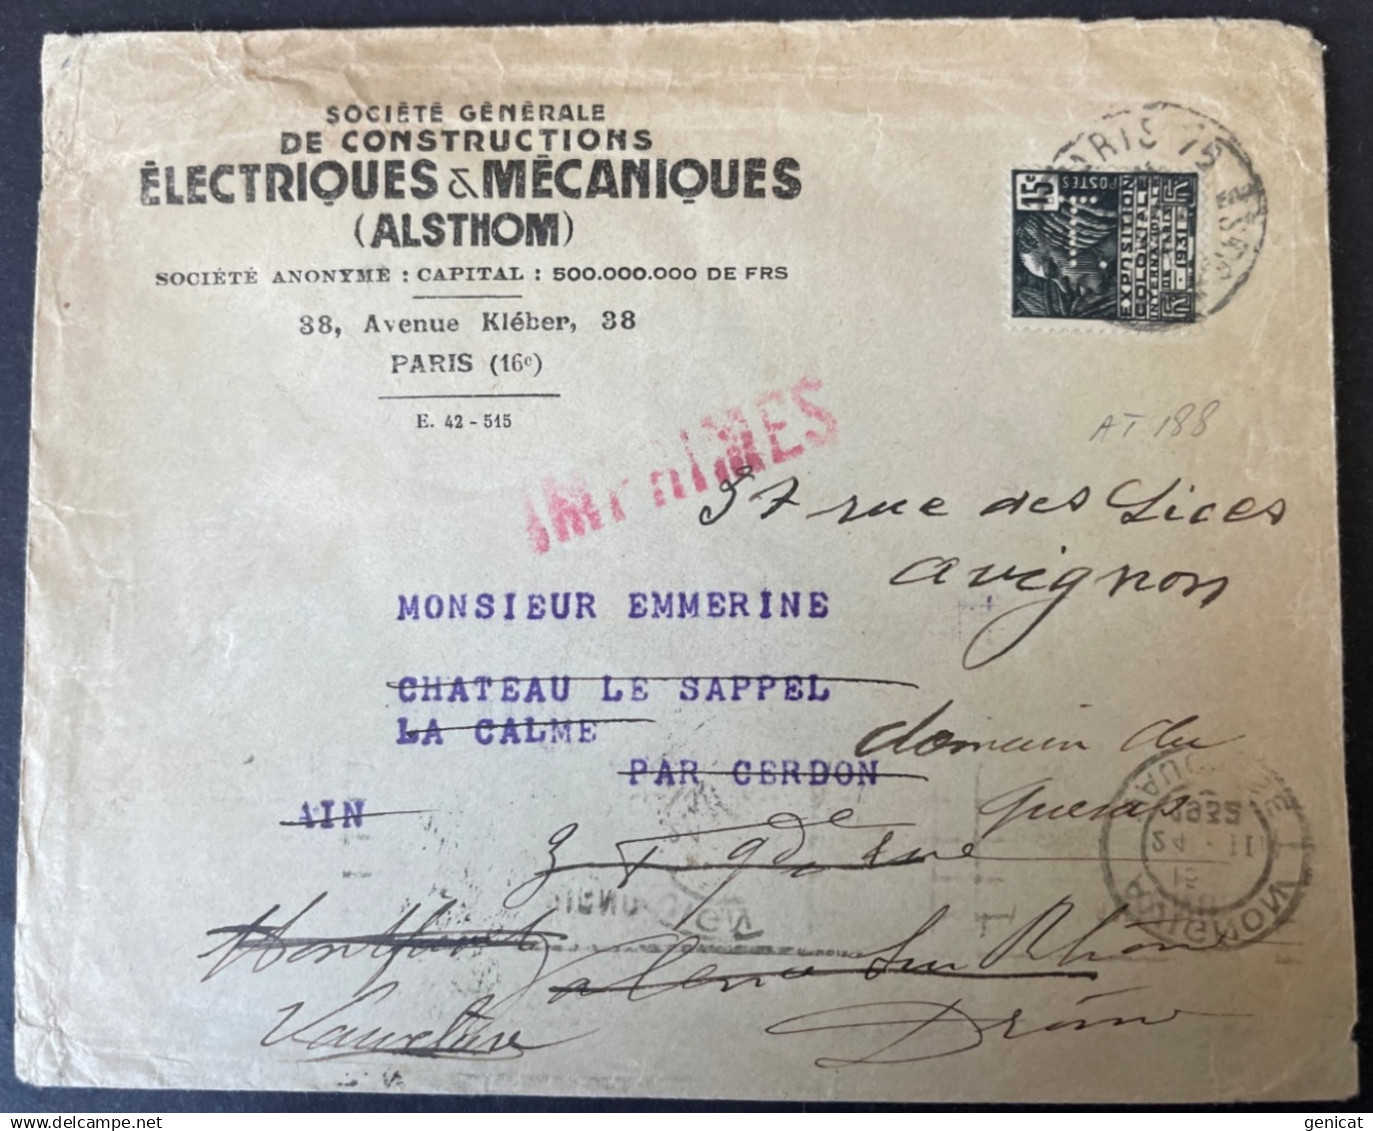 SOCIÉTÉ GÉNÉRALE
DE CONSTRUCTIONS
ÉLECTRIQUES & MÉCANIQUES
(ALSTHOM)
SOCIÉTÉ ANONYME : CAPITAL : 500.000.000 DE FRS
38, Avenue Kléber, 38
PARIS (16e)
E. 42 - 515
PARIS 15
15c
POSTES
EXPOSITION
COLONIALE
INTERNATIONALE
DE PARIS
1931
AT 188
IMPRIMES
37 rue des Lices
avignon
MONSIEUR EMMERINE
CHATEAU LE SAPPEL
LA CALME
PAR CERDON
AIN
domain du
Valence sur Rhône
Vaucluse
Drôme
AVIGNON
genicat
delcampe.net